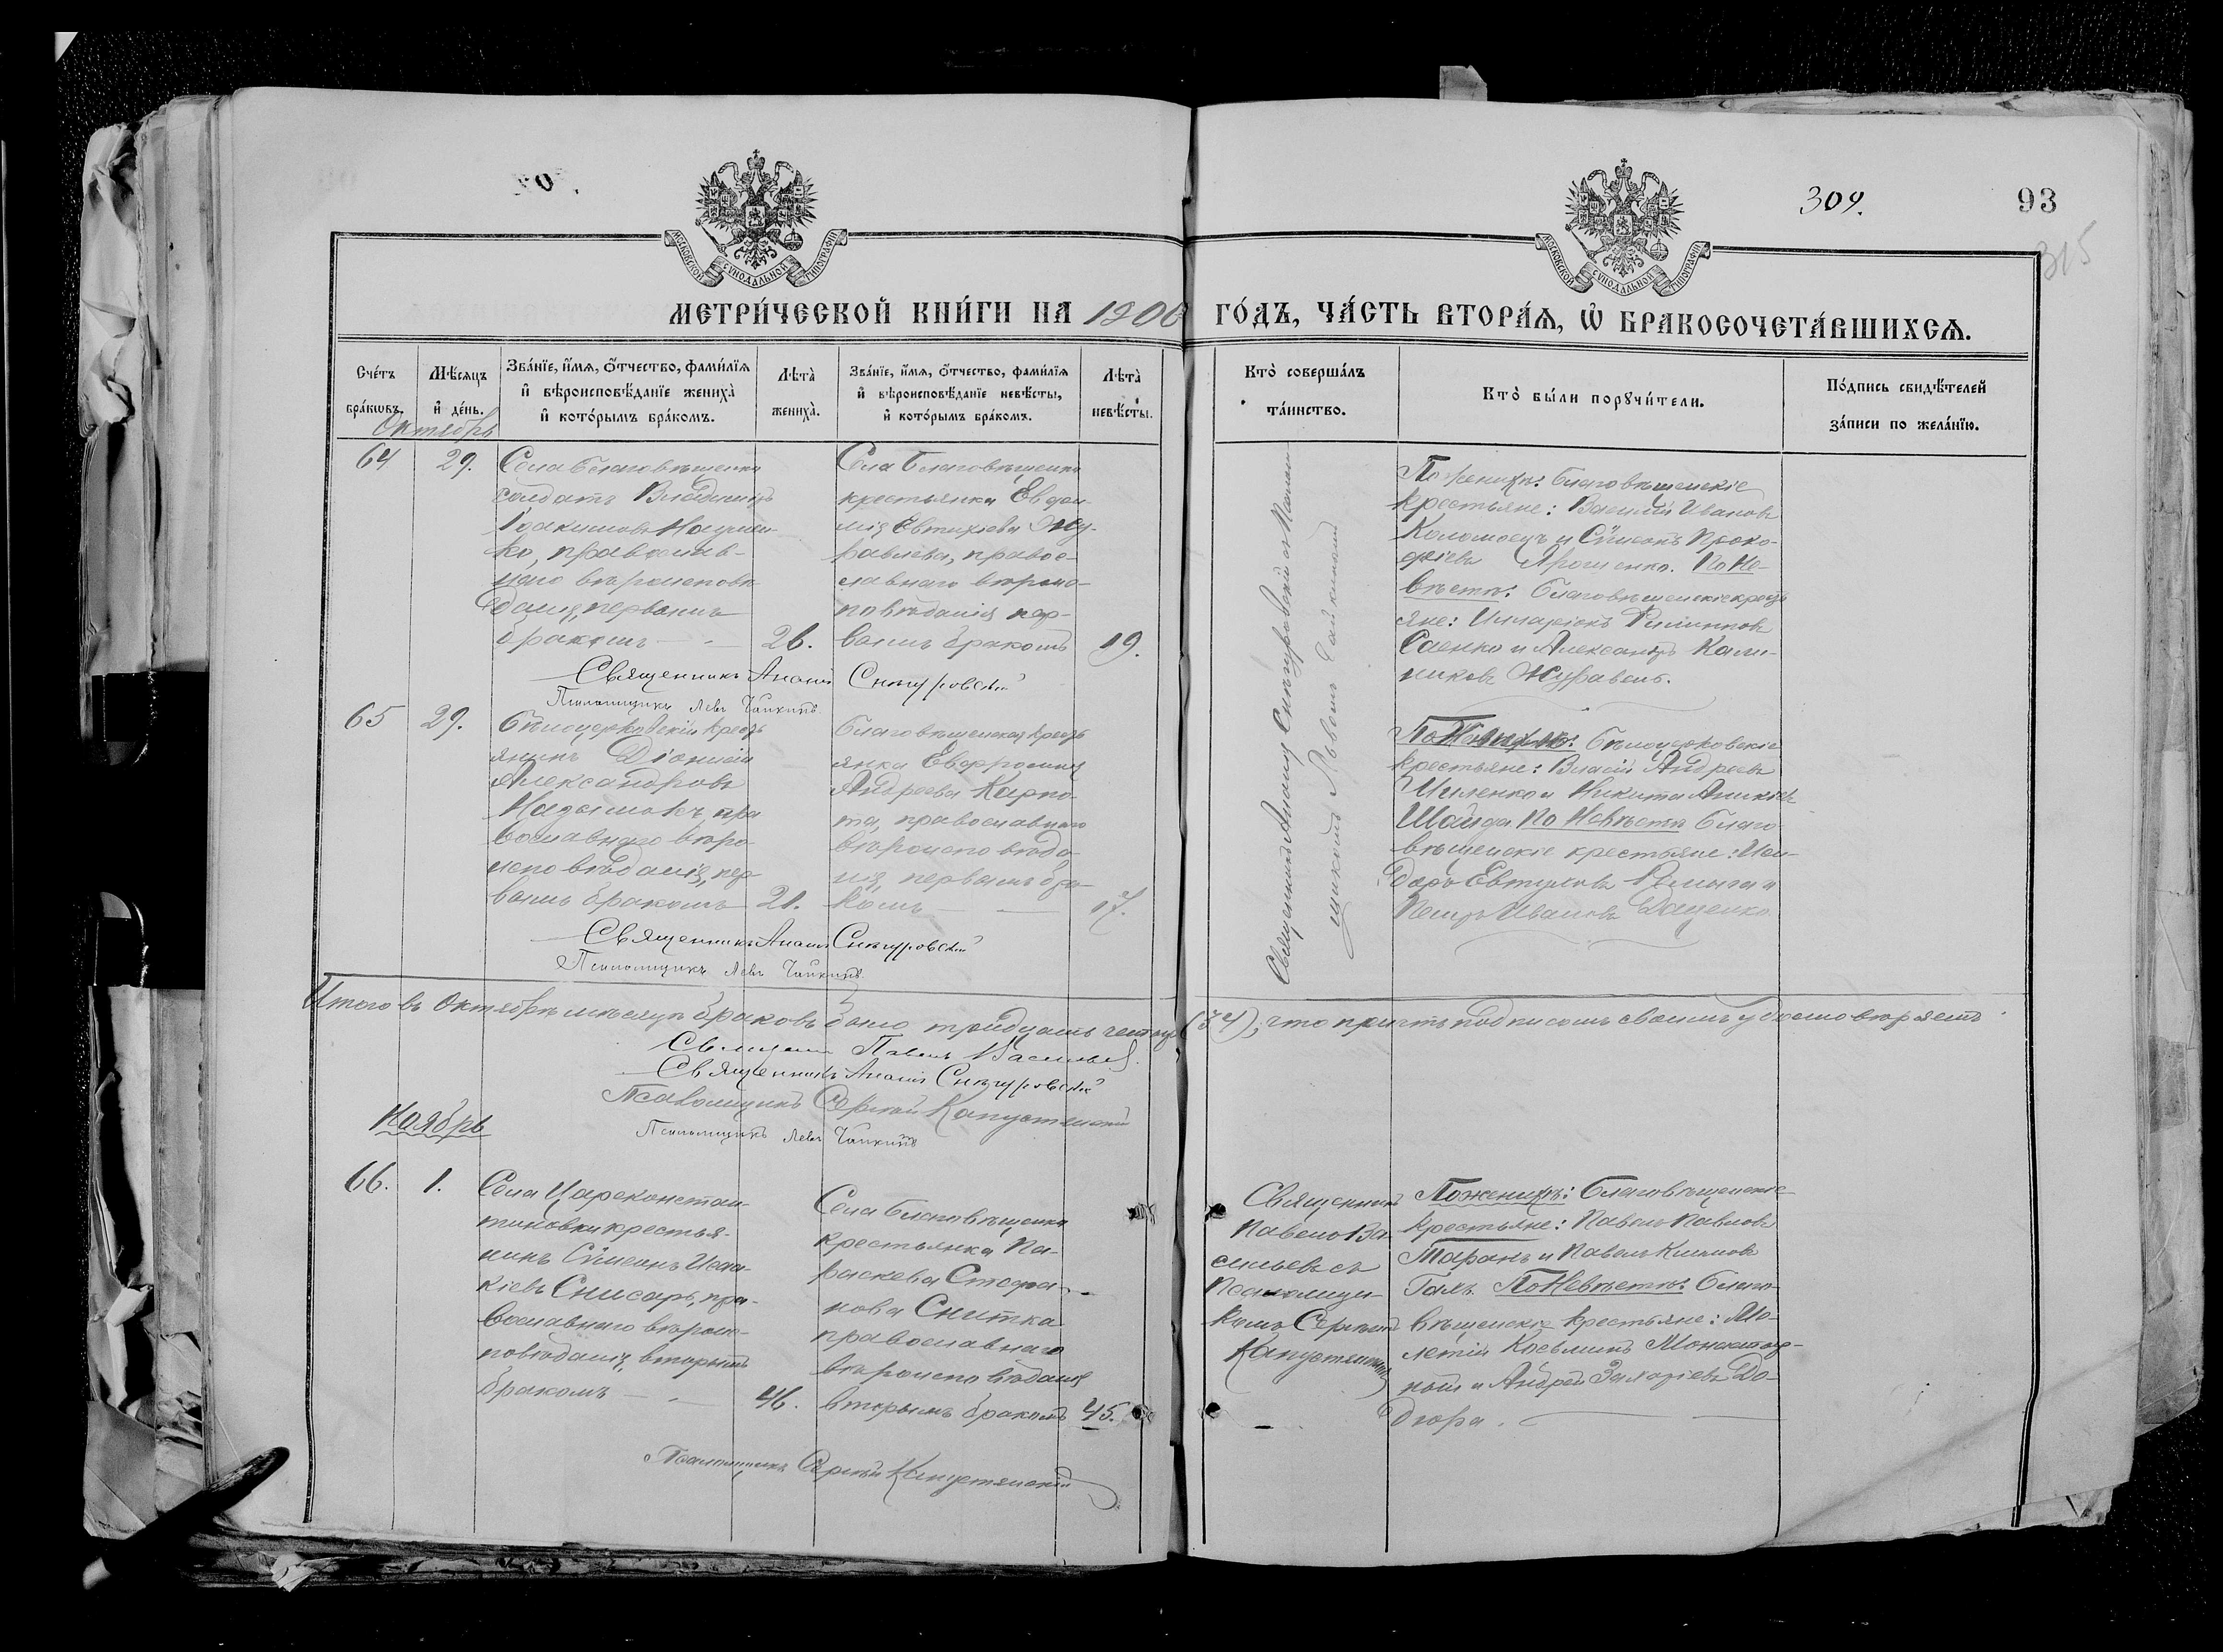 309.
93
315
МОСКОВСКОЙ СѴНОДАЛЬНОЙ ТИПОГРАФІИ
МОСКОВСКОЙ СѴНОДАЛЬНОЙ ТИПОГРАФІИ
МЕТРИ́ЧЕСКОЙ КНИ́ГИ НА 1900 ГО́ДЪ, ЧА́СТЬ ВТОРА́Ѧ, Ѽ БРАКОСОЧЕТА́ВШИХСѦ.
Сче́тъ
бра́ковъ.
Мѣ́сяцъ
и де́нь.
Зва́нїе, и́мѧ, ѻ́тчество, фами́лїѧ
и вѣроисповѣ́данїе жениха̀
и кото́рымъ бра́комъ.
Лѣта̀
жениха̀.
Зва́нїе, и́мѧ, ѻ́тчество, фами́лїѧ
и вѣроисповѣ́данїе невѣ́сты,
и кото́рымъ бра́комъ.
Лѣта̀
невѣ́сты.
Кто̀ соверша́лъ
та́инство.
Кто̀ бы́ли порꙋчи́тели.
По́дпись свидѣ́телей
за́писи по жела́нїю.
Октябрь
64
29.
Села Благовѣщенки
солдатъ Владиміръ
Іоакимовъ Науменко,
православнаго
вѣроисповѣданія,
первымъ
бракомъ
26.
Села Благовѣщенки
крестьянка Евфимія
Евтихіева Журавлева,
православнаго
вѣроисповѣданія
первымъ бракомъ
19.
Священникъ Ананій Снѣгуровскій с Псаломщикомъ Львомъ Чайкинымъ
По женихѣ: Благовѣщенскіе
крестьяне: Василій Ивановъ
Коломоецъ и Сѵмеонъ Прокофіевъ
Ярошенко. По невѣстѣ:
Благовѣщенскіе крестьяне:
Иларіонъ Филипповъ
Саенко и Александръ
Журавель.
Священникъ Ананій Снѣгуровскій
Псаломщикъ Левъ Чайкинъ
65
29.
Бѣлоцерковскій крестьянинъ
Діонисій
Александровъ
православнаго
вѣроисповѣданія, первымъ
бракомъ
21.
Благовѣщенская крестьянка
Евфросинія
Андреева
православнаго
вѣроисповѣданія,
первымъ бракомъ
17.
По женихѣ: Бѣлоцерковскіе
крестьяне: Власій Андреевъ
и Никита
По невѣстѣ Благовѣщенскіе
крестьяне: Исидоръ
и
Петръ Ивановъ Даценко.
Священникъ Ананій Снѣгуровскій
Псаломщикъ Левъ Чайкинъ
Итого въ Октябрѣ мѣсяцѣ браковъ было тридцать четыре (34), что причтъ подписомъ своимъ удостовѣряетъ.
Священникъ Павелъ Васильевъ.
Священникъ Ананій Снѣгуровскій
Псаломщикъ Сергѣй Капустянскій
Псаломщикъ Левъ Чайкинъ
Ноябрь
66.
1.
Села Цареконстантиновки
крестьянинъ
Сѵмеонъ Исаакіевъ
Снисарь, православнаго
вѣроисповѣданія,
вторымъ
бракомъ
46.
Села Благовѣщенки
крестьянка Параскева
Стефанова
Снитка
православнаго
вѣроисповѣданія
вторымъ бракомъ
45.
Священникъ
Павелъ Васильевъ
съ
Псаломщикомъ
Сергѣемъ
Капустянскимъ
По женихѣ: Благовѣщенскіе
крестьяне: Павелъ Павловъ
Таранъ и Павелъ Климовъ
По невѣстѣ: Благовѣщенскіе
крестьяне: Мелетій
Косьминъ
и Андрей
Псаломщикъ Сергѣй Капустянскій